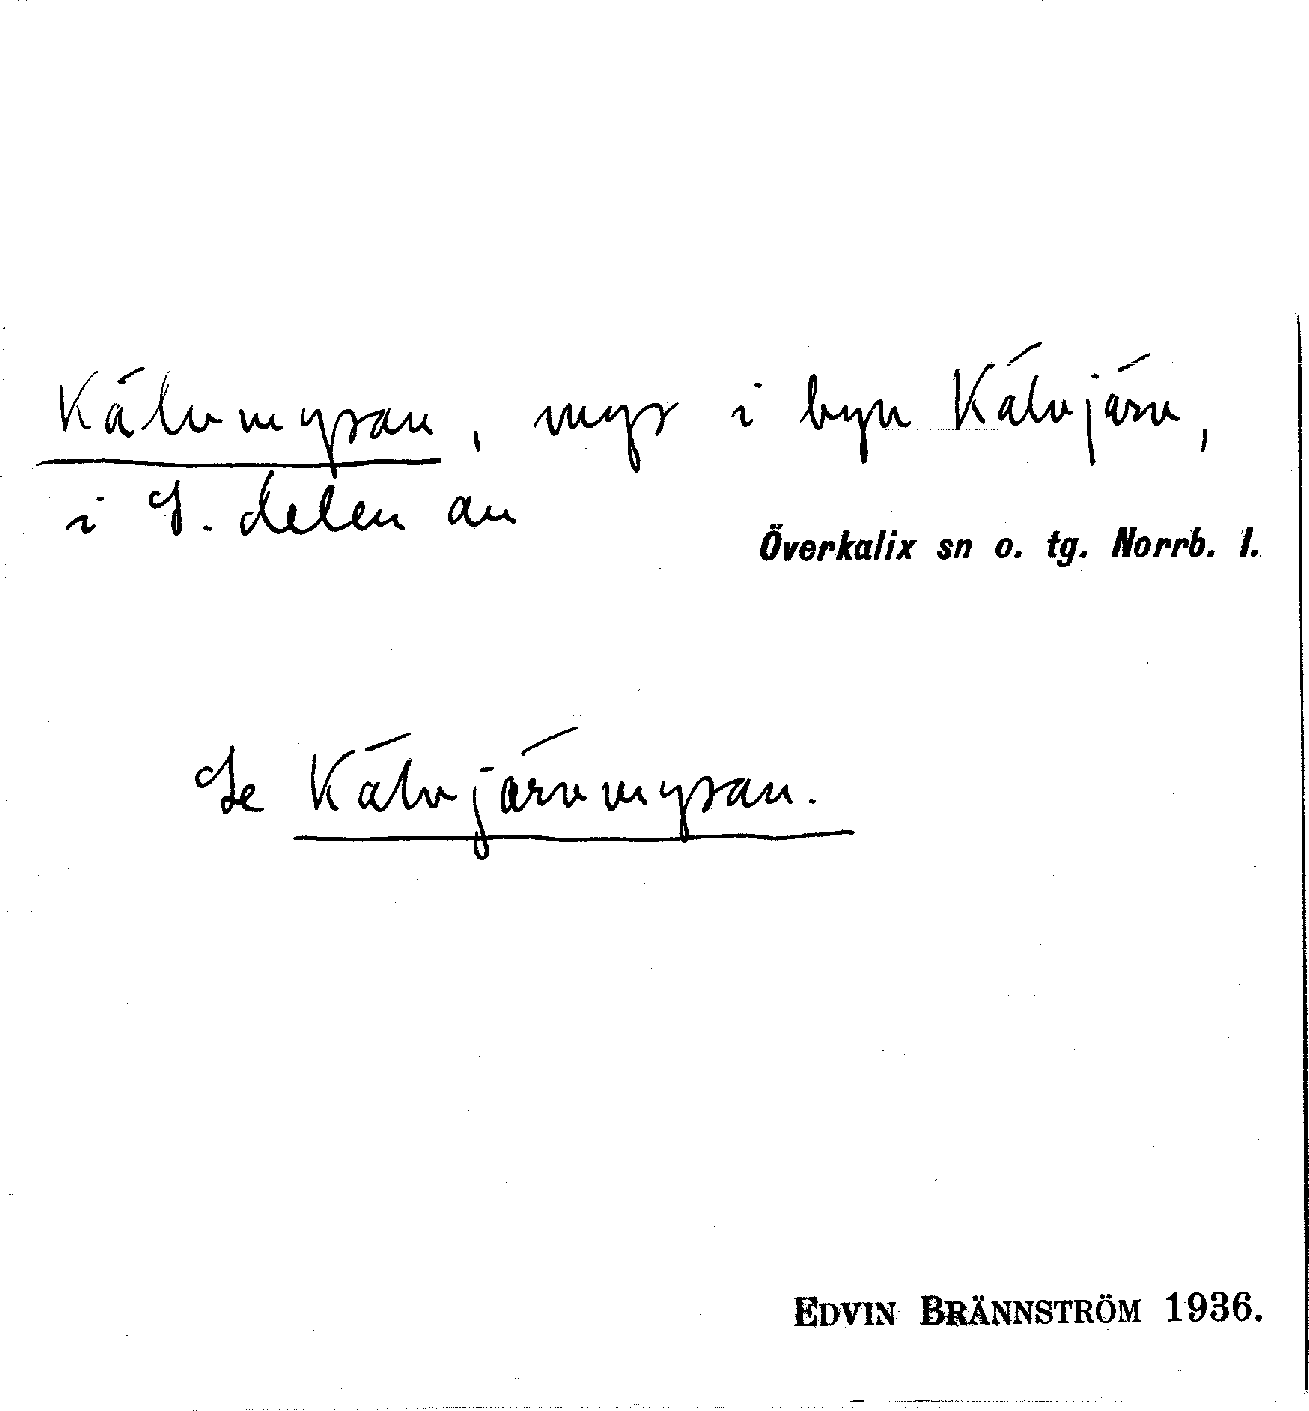 Kälvmyran, myr i byn Kälvjärv,
i S. delen av
Överkalix sn o. tg. Norrb. l.
Se Kälvjärvmyran.
EDVIN BRÄNNSTRÖM 1936.